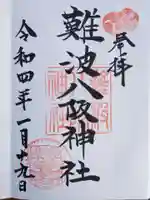 奉拝
難波八阪神社
令和四年一月十九日